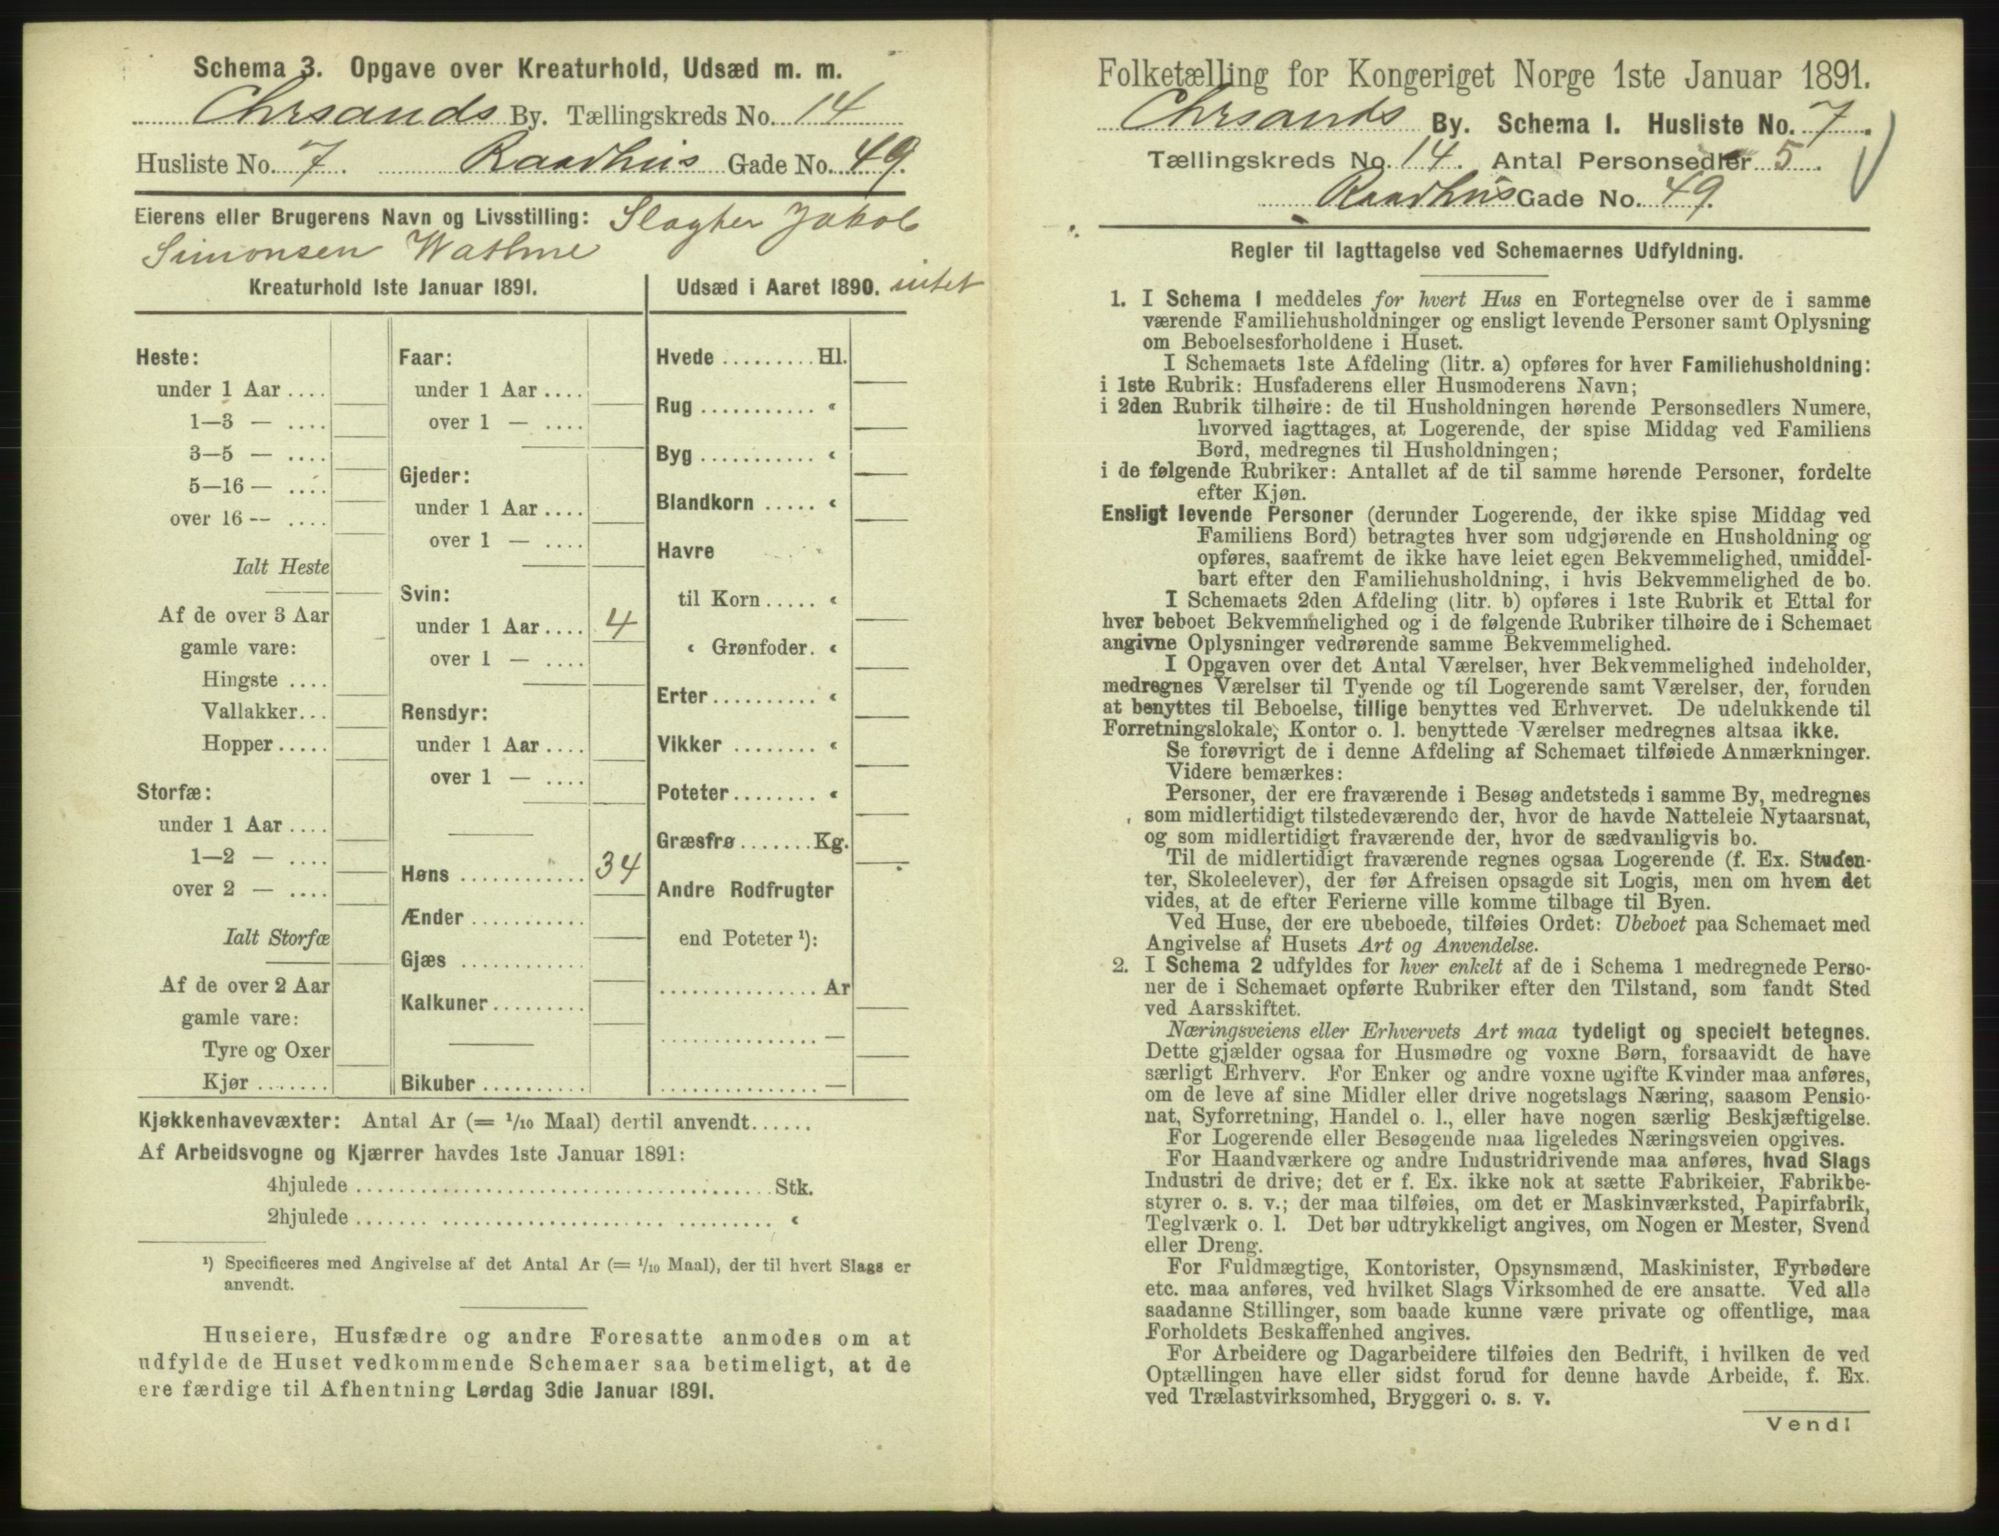 Schema 3. Opgave over Kreaturhold, Udsæd m. m.
Chrsands By. Tællingskreds No. 14
Husliste No. 7. Raadhus Gade No. 49.
Eierens eller Brugerens Navn og Livsstilling: Slagter Jakob
Simonsen Wathne
Kreaturhold 1ste Januar 1891.
Heste:
under 1 Aar ....
1—3 — ....
3—5 — ....
5—16 — ....
over 16 -- ....
Ialt Heste
Af de over 3 Aar
gamle vare:
Hingste ....
Vallakker...
Hopper.....
Storfæ:
under 1 Aar ....
1—2 — ....
over 2 — ....
Ialt Storfæ
Af de over 2 Aar
gamle vare:
Tyre og Oxer
Kjør .......
Faar:
under 1 Aar ....
over 1 — ....
Gjeder:
under 1 Aar ....
over 1 — ....
Svin:
under 1 Aar .... 4
over 1 — ....
Rensdyr:
under 1 Aar ....
over 1 — ....
Høns ............ 34
Ænder ...........
Gjæs ............
Kalkuner.........
Bikuber ..........
Udsæd i Aaret 1890. intet
Hvede ......... Hl.
Rug ........... «
Byg ........... «
Blandkorn ..... «
Havre
til Korn ..... «
« Grønfoder. «
Erter .......... «
Vikker ........ «
Poteter........ «
Græsfrø ....... Kg.
Andre Rodfrugter
end Poteter ¹):
............... Ar
............... —
............... —
Kjøkkenhavevæxter: Antal Ar (= 1/10 Maal) dertil anvendt......
Af Arbeidsvogne og Kjærrer havdes 1ste Januar 1891:
4hjulede ........................................ Stk.
2hjulede ........................................ «
¹) Specificeres med Angivelse af det Antal Ar (= 1/10 Maal), der til hvert Slags er
anvendt.
Huseiere, Husfædre og andre Foresatte anmodes om at
udfylde de Huset vedkommende Schemaer saa betimeligt, at de
ere færdige til Afhentning Lørdag 3die Januar 1891.
Folketælling for Kongeriget Norge 1ste Januar 1891.
Chrsands By. Schema 1. Husliste No. 7.
Tællingskreds No. 14. Antal Personsedler 5.
Raadhus Gade No. 49.
Regler til Iagttagelse ved Schemaernes Udfyldning.
1. I Schema 1 meddeles for hvert Hus en Fortegnelse over de i samme
værende Familiehusholdninger og ensligt levende Personer samt Oplysning
om Beboelsesforholdene i Huset.
I Schemaets 1ste Afdeling (litr. a) opføres for hver Familiehusholdning:
i 1ste Rubrik: Husfaderens eller Husmoderens Navn;
i 2den Rubrik tilhøire: de til Husholdningen hørende Personsedlers Numere,
hvorved iagttages, at Logerende, der spise Middag ved Familiens
Bord, medregnes til Husholdningen;
i de følgende Rubriker: Antallet af de til samme hørende Personer, fordelte
efter Kjøn.
Ensligt levende Personer (derunder Logerende, der ikke spise Middag ved
Familiens Bord) betragtes hver som udgjørende en Husholdning og
opføres, saafremt de ikke have leiet egen Bekvemmelighed, umiddel-
bart efter den Familiehusholdning, i hvis Bekvemmelighed de bo.
I Schemaets 2den Afdeling (litr. b) opføres i 1ste Rubrik et Ettal for
hver beboet Bekvemmelighed og i de følgende Rubriker tilhøire de i Schemaet
angivne Oplysninger vedrørende samme Bekvemmelighed.
I Opgaven over det Antal Værelser, hver Bekvemmelighed indeholder,
medregnes Værelser til Tyende og til Logerende samt Værelser, der, foruden
at benyttes til Beboelse, tillige benyttes ved Erhvervet. De udelukkende til
Forretningslokale, Kontor o. l. benyttede Værelser medregnes altsaa ikke.
Se forøvrigt de i denne Afdeling af Schemaet tilføiede Anmærkninger.
Videre bemærkes:
Personer, der ere fraværende i Besøg andetsteds i samme By, medregnes
som midlertidigt tilstedeværende der, hvor de havde Natteleie Nytaarsnat,
og som midlertidigt fraværende der, hvor de sædvanligvis bo.
Til de midlertidigt fraværende regnes ogsaa Logerende (f. Ex. Studen-
ter, Skoleelever), der før Afreisen opsagde sit Logis, men om hvem det
vides, at de efter Ferierne ville komme tilbage til Byen.
Ved Huse, der ere ubeboede, tilføies Ordet: Ubeboet paa Schemaet med
Angivelse af Husets Art og Anvendelse.
2. I Schema 2 udfyldes for hver enkelt af de i Schema 1 medregnede Perso-
ner de i Schemaet opførte Rubriker efter den Tilstand, som fandt Sted
ved Aarsskiftet.
Næringsveiens eller Erhvervets Art maa tydeligt og specielt betegnes.
Dette gjælder ogsaa for Husmødre og voxne Børn, forsaavidt de have
særligt Erhverv. For Enker og andre voxne ugifte Kvinder maa anføres,
om de leve af sine Midler eller drive nogetslags Næring, saasom Pensio-
nat, Syforretning, Handel o. l., eller have nogen særlig Beskjæftigelse.
For Logerende eller Besøgende maa ligeledes Næringsveien opgives.
For Haandværkere og andre Industridrivende maa anføres, hvad Slags
Industri de drive; det er f. Ex. ikke nok at sætte Fabrikeier, Fabrikbe-
styrer o. s. v.; der maa tilføies, om det er Maskinværksted, Papirfabrik,
Teglværk o. l. Det bør udtrykkeligt angives, om Nogen er Mester, Svend
eller Dreng.
For Fuldmægtige, Kontorister, Opsynsmænd, Maskinister, Fyrbødere
etc. maa anføres, ved hvilket Slags Virksomhed de ere ansatte. Ved alle
saadanne Stillinger, som baade kunne være private og offentlige, maa
Forholdets Beskaffenhed angives.
For Arbeidere og Dagarbeidere tilføies den Bedrift, i hvilken de ved
Optællingen have eller sidst forud for denne havde Arbeide, f. Ex.
ved Trælastvirksomhed, Bryggeri o. s. v.
Vend!